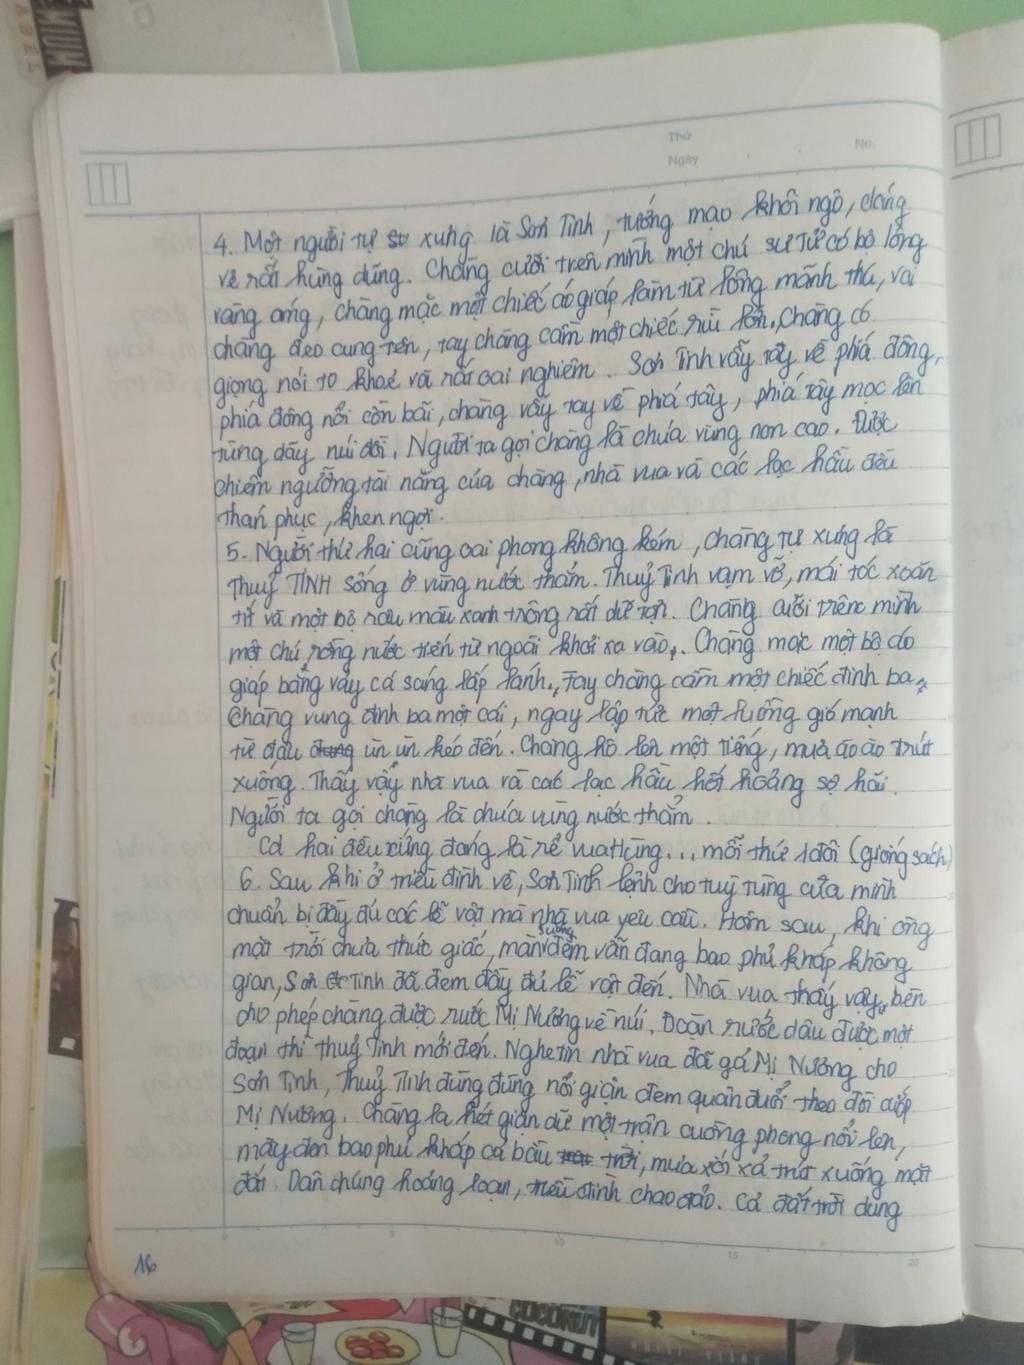 MIUM
LABEL
Thứ
Ngày
No.
4. Một người tự xưng là Sơn Tinh, tướng mạo khôi ngô, dáng
vẻ rất hùng dũng. Chàng cưỡi trên mình một chú sư Tử có bộ lông
vàng óng, chàng mặc một chiếc áo giáp làm từ lông mãnh thú, vai
chàng đeo cung tên, tay chàng cầm một chiếc rìu lớn. Chàng có
giọng nói to khoẻ và rất oai nghiêm. Sơn Tinh vẫy tay về phía đông,
phía đông nổi cồn bãi, chàng vẫy tay về phía tây, phía tây mọc lên
từng dãy núi đồi. Người ta gọi chàng là chúa vùng non cao. Được
chiêm ngưỡng tài năng của chàng, nhà vua và các lạc hầu đều
thán phục, khen ngợi.
5. Người thứ hai cũng oai phong không kém, chàng tự xưng là
Thuỷ TINH sống ở vùng nước thẳm. Thuỷ Tinh vạm vỡ, mái tóc xoăn
tít và một bộ râu màu xanh trông rất dữ tợn. Chàng cưỡi trên mình
một chú rồng nước tiến từ ngoài khơi xa vào. Chàng mặc một bộ áo
giáp bằng vảy cá sáng lấp lánh. Tay chàng cầm một chiếc đinh ba.
Chàng vung đinh ba một cái, ngay lập tức một luồng gió mạnh
từ đâu ùn ùn kéo đến. Chàng hô lên một tiếng, mưa ào ào trút
xuống. Thấy vậy nhà vua và các lạc hầu hốt hoảng sợ hãi.
Người ta gọi chàng là chúa vùng nước thẳm.
Cả hai đều xứng đáng là rể vua Hùng... mỗi thứ 1 đôi (giống sách)
6. Sau khi ở triều đình về, Sơn Tinh lệnh cho tuỳ tùng của mình
chuẩn bị đầy đủ các lễ vật mà nhà vua yêu cầu. Hôm sau, khi ông
mặt trời chưa thức giấc, màn sương đêm vẫn đang bao phủ khắp không
gian, Sơn Tinh đã đem đầy đủ lễ vật đến. Nhà vua thấy vậy, bèn
cho phép chàng được rước Mị Nương về núi. Đoàn rước dâu được một
đoạn thì Thuỷ Tinh mới đến. Nghe tin nhà vua đã gả Mị Nương cho
Sơn Tinh, Thuỷ Tinh đùng đùng nổi giận đem quân đuổi theo đòi cướp
Mị Nương. Chàng la hét giận dữ một trận cuồng phong nổi lên,
mây đen bao phủ khắp cả bầu trời, mưa xối xả trút xuống mặt
đất. Dân chúng hoảng loạn, triều đình chao đảo. Cả đất trời dung
0 5 10 15 20
16
COCONUT